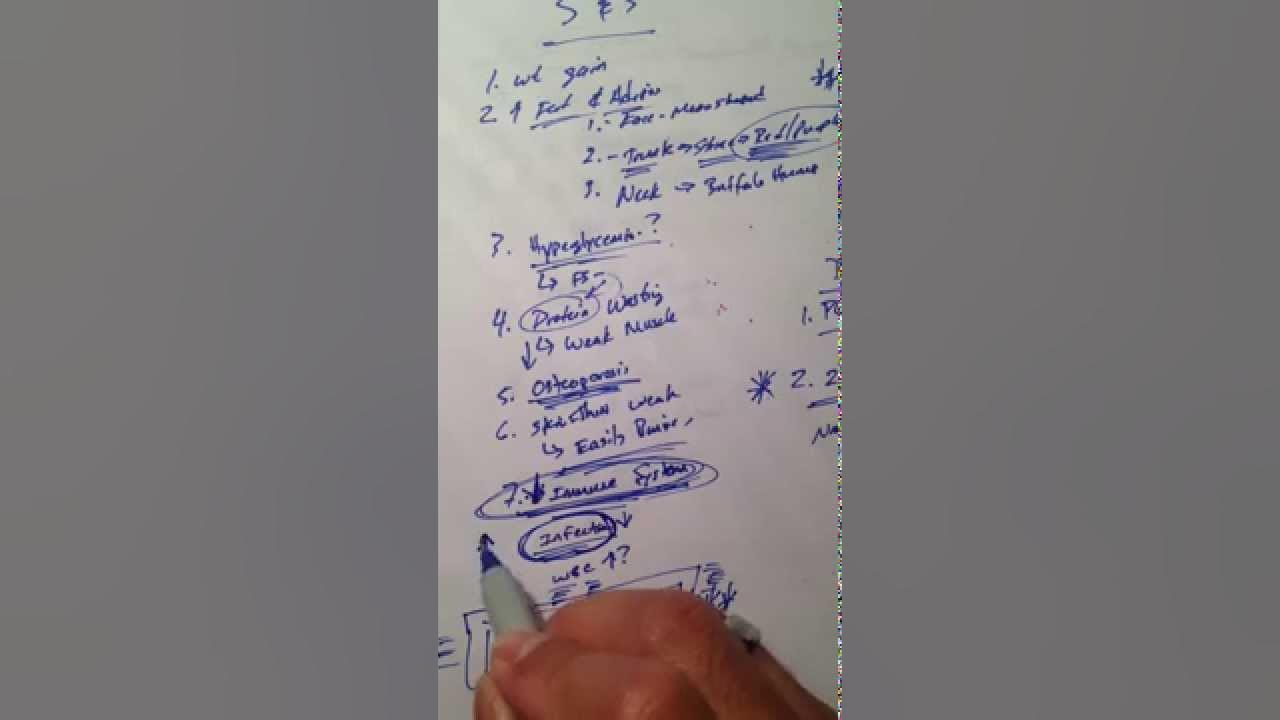 S & S
1. wt gain
2 ↑ Fat & Admin
1. - Face - Moon
2. - Trunk → Striae → Red/Purple
3. Neck → Buffalo Hump
3. Hyperglycemia?
↳ FS
4. Protein Wasting
↓ ↳ Weak Muscle
5. Osteoporosis
6. Skin Thin weak
↳ Easily Bruise
7. ↓ Immune System
Infection ↓
WBC ↑?
1.
2. 2